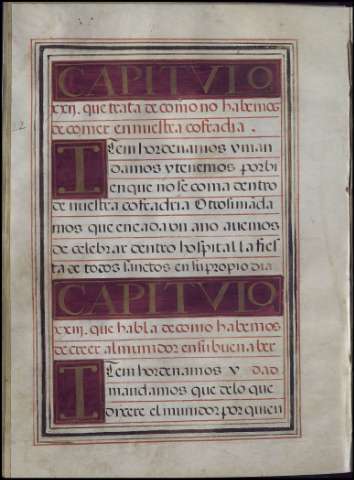 CAPITVLO
xxij. que trata de como no habemos
de comer en nuestra cofradia.
Item hordenamos y man
damos y tenemos por bi
en que no se coma dentro
de nuestra cofradria Otrosi mãda
mos que en cada vn ano auemos
de celebrar dentro hospital la fies
ta de todos sanctos en su propio dia
CAPITVLO
xxiij. que habla de como habemos
de creer al munidor en su buena ber
Item hordenamos y dad
mandamos que de lo que
dixere el munidor por quien